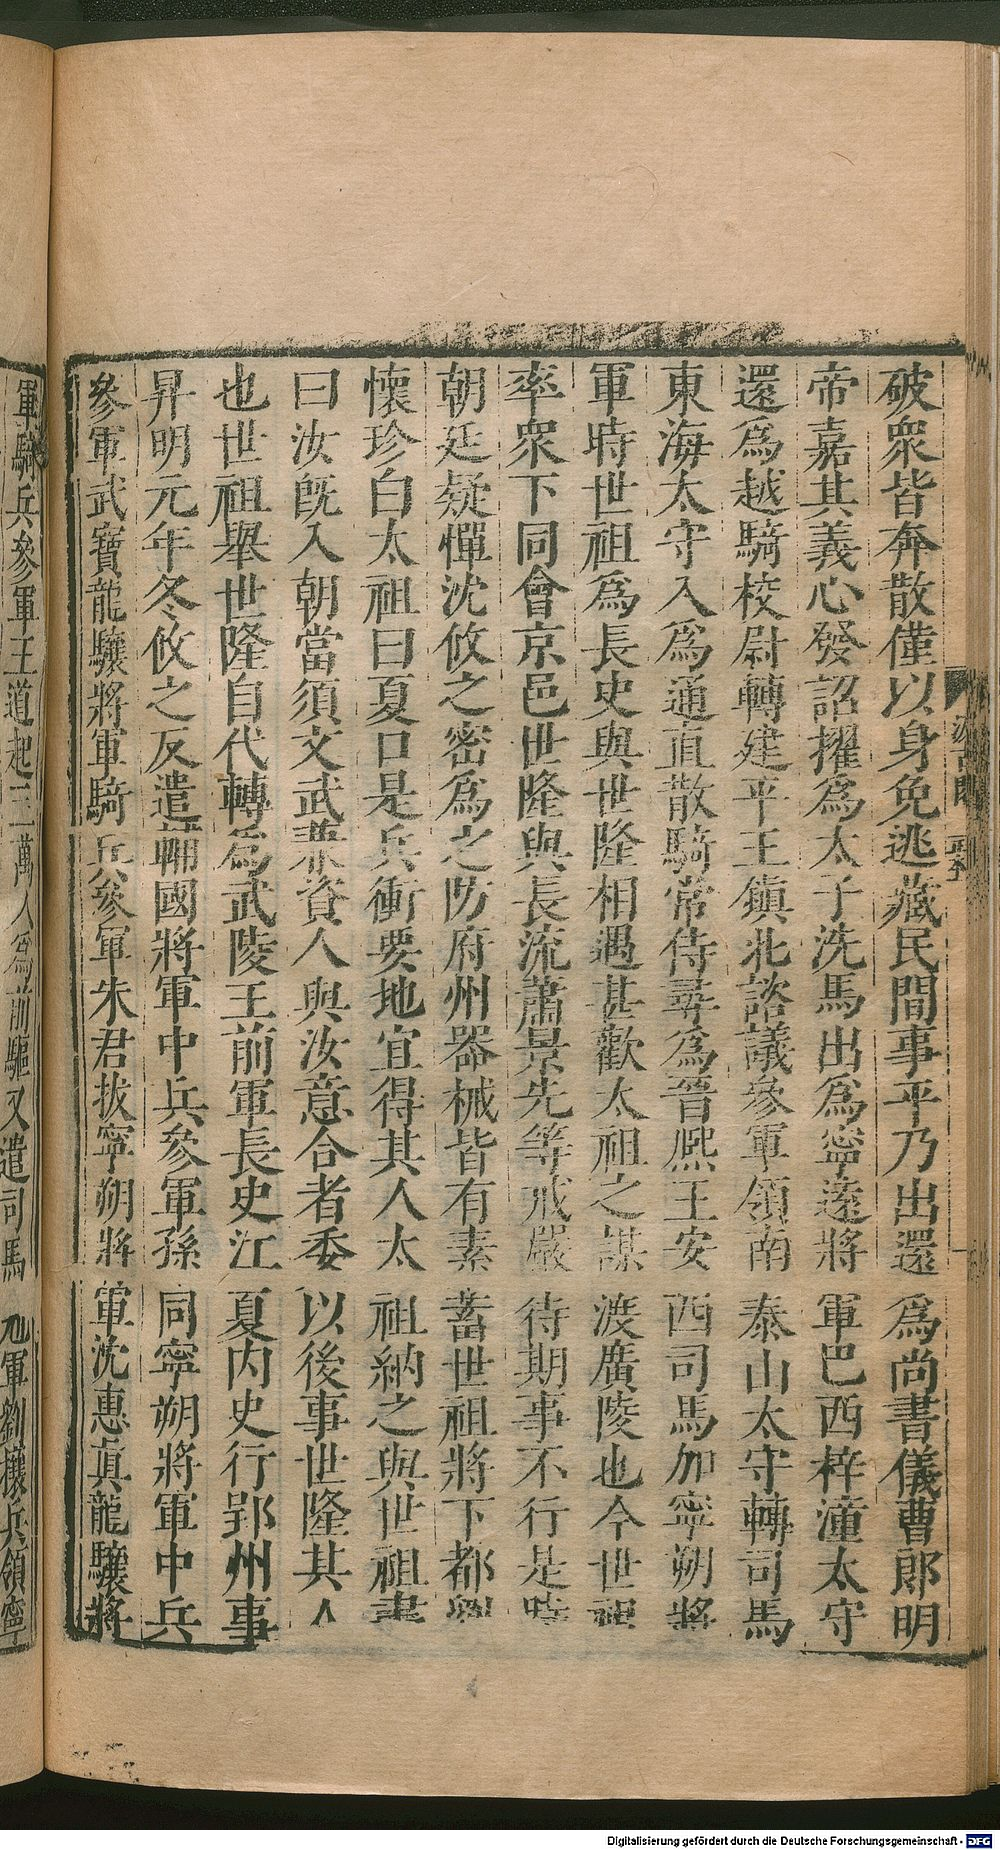 破衆皆奔散僅以身免逃藏民間事平乃出還爲尚書儀曹郎明
帝嘉其義心發詔擢爲太子洗馬出爲寧遠將軍巴西梓潼太守
還爲越騎校尉轉建平王鎮北諮議參軍領南泰山太守轉司馬
東海太守入爲通直散騎常侍尋爲晉熙王安西司馬加寧朔將
軍時世祖爲長史與世隆相遇甚歡太祖之謀渡廣陵也令世祖
率衆下同會京邑世隆與長流蕭景先等戒嚴待期事不行是時
朝廷疑憚沈攸之密爲之防府州器械皆有素蓄世祖將下都劉
懷珍白太祖曰夏口是兵衝要地宜得其人太祖納之與世祖書
曰汝旣入朝當須文武兼資人與汝意合者委以後事世隆其人
也世祖舉世隆自代轉爲武陵王前軍長史江夏内史行郢州事
昇明元年冬攸之反遣輔國將軍中兵參軍孫同寧朔將軍中兵
參軍武寶龍驤將軍騎兵參軍朱君拔寧朔將軍沈惠眞龍驤將
軍騎兵參軍王道起三萬人爲前驅又遣司馬冠軍劉攘兵領寧
Digitalisierung gefördert durch die Deutsche Forschungsgemeinschaft - DFG